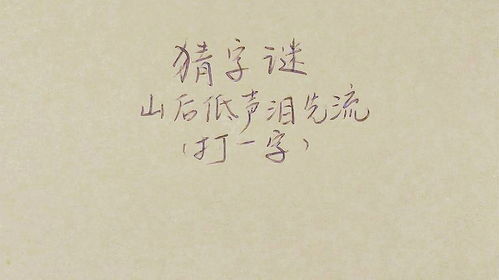 猜字谜
山后低声泪先流
(打一字)